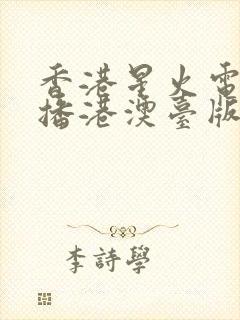 香港星火電
播港澳臺版
李詩學